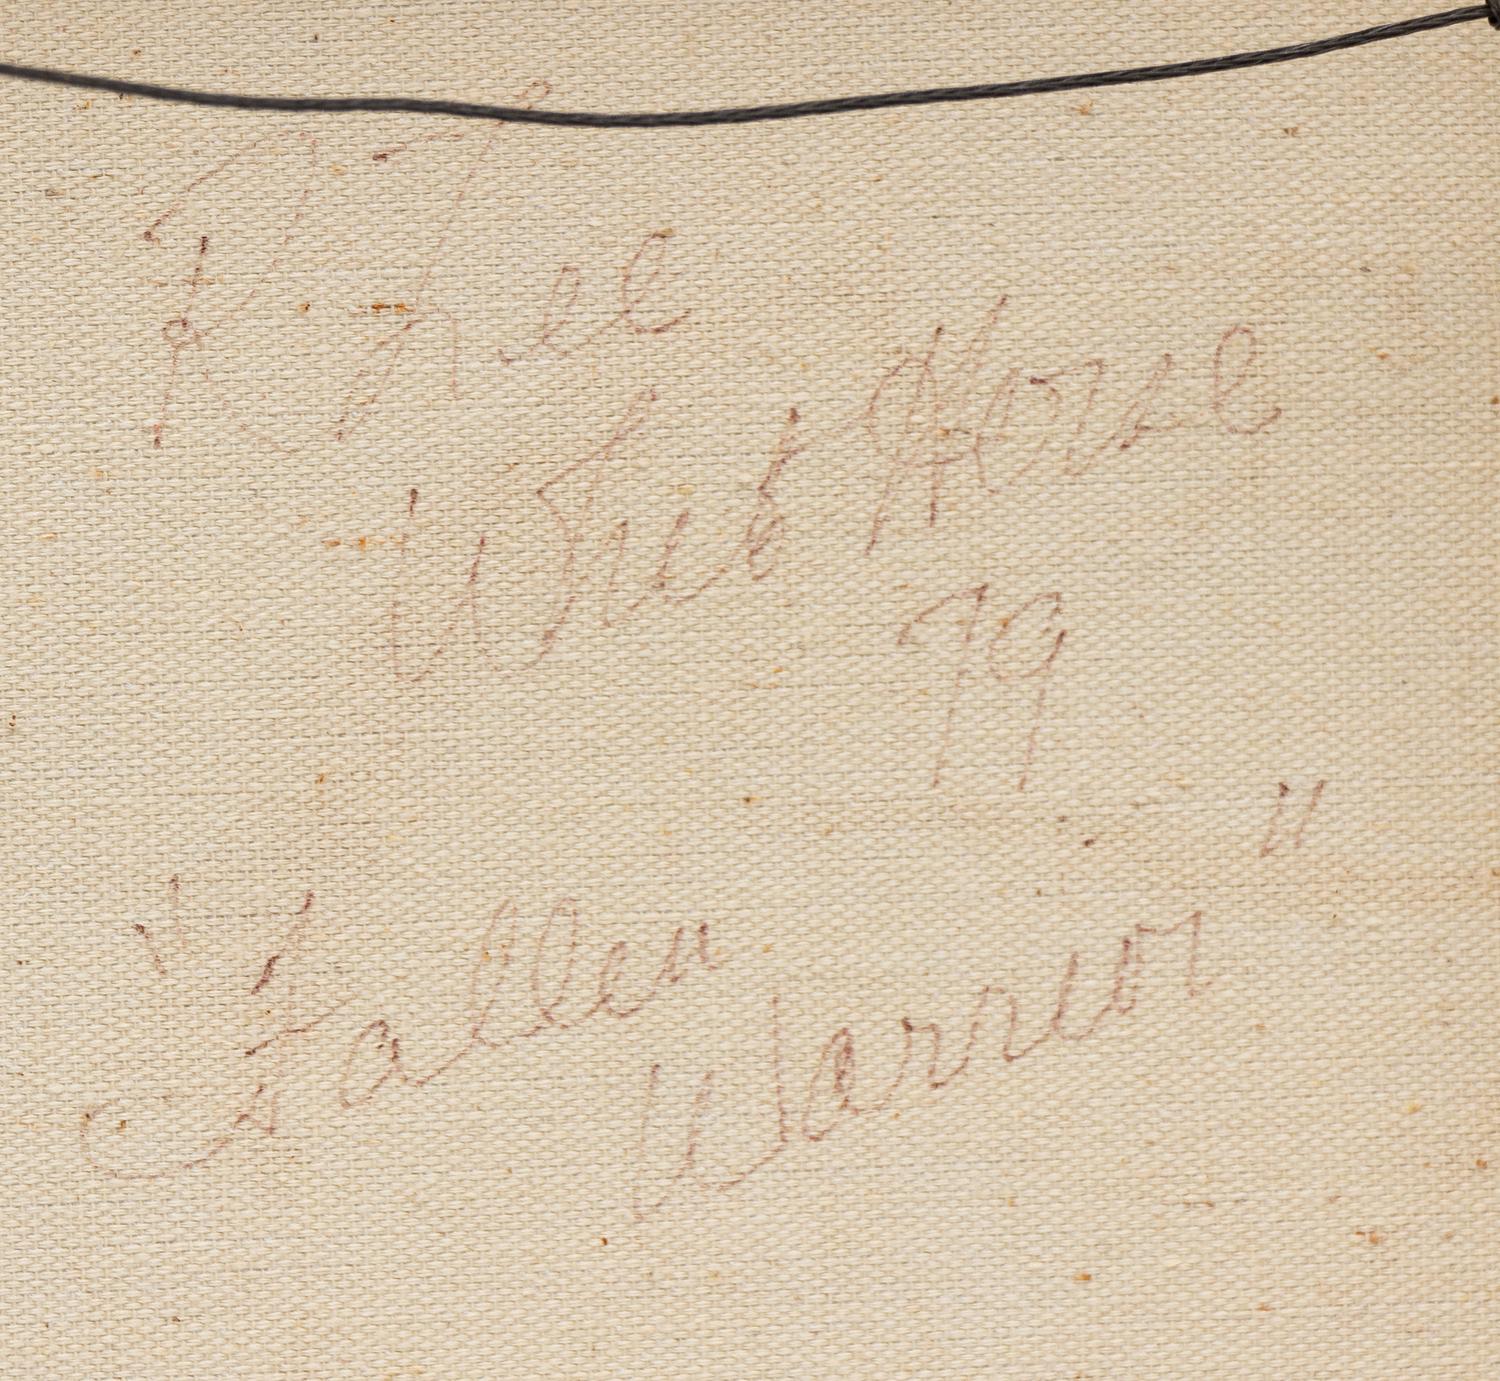 R Lee
White Horse
79
"Fallen
Warrior"